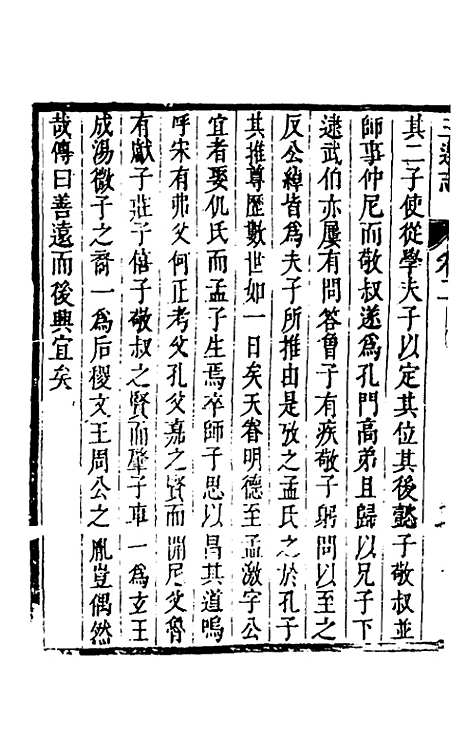 三遷志 卷二
其二子使從學夫子以定其位其後懿子敬叔並
師事仲尼而敬叔遂爲孔門高弟且歸以兄子下
逮武伯亦屢有問答魯子有疾敬子躬問以至之
反公綽皆爲夫子所推由是攷之孟氏之於孔子
其推尊歷數世如一日矣天眷明德至孟激字公
宜者娶仉氏而孟子生焉卒師子思以昌其道嗚
呼宋有弗父何正考父孔父嘉之賢而開尼父魯
有獻子莊子僖子敬叔之賢而肇子車一爲玄王
成湯微子之裔一爲后稷文王周公之胤豈偶然
哉傳曰善遠而後興宜矣